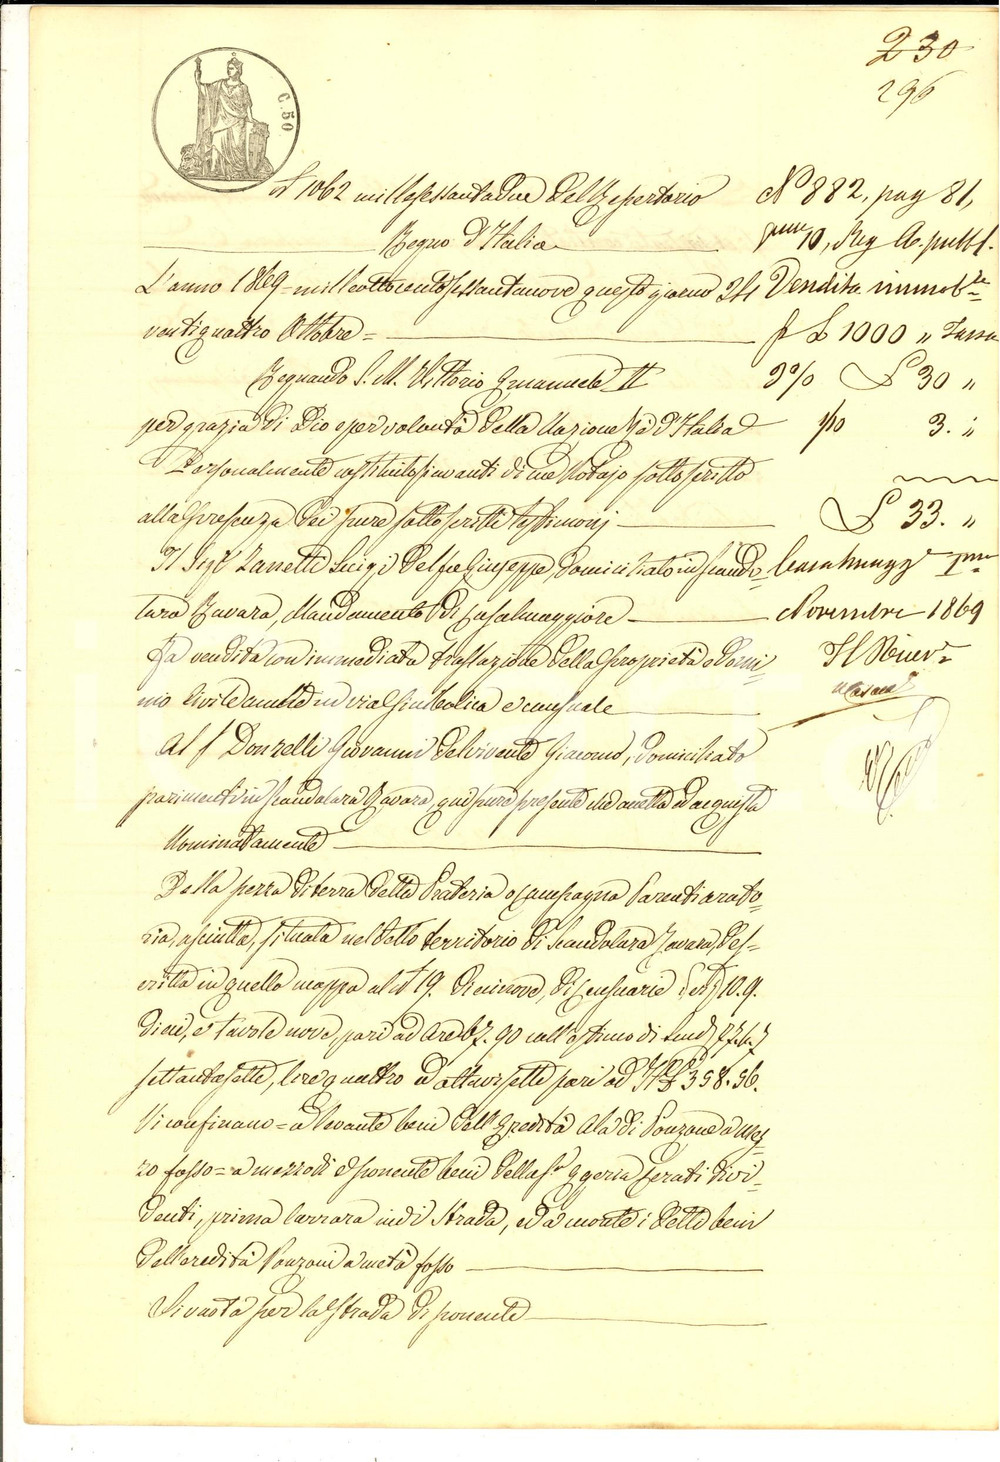 230
296
C. 50
N 1062 millesessantadue del Repertorio
Regno d'Italia
L'anno 1869 = mille ottocento sessantanove questo giorno 24
ventiquattro Ottobre =
Regnando S. M. Vittorio Emanuele II
per grazia di Dio e per volontà della Nazione Rè d'Italia
Personalmente costituito avanti di me Notajo sottoscritto
alla presenza dei pure sottoscritti testimonj
Il Sigr Zanetti Luigi del fu Giuseppe domiciliato in Scando=
lara Ravara, Mandamento di Casalmaggiore
Fa vendita con immediata traslazione della proprietà e Domi=
nio civile anche in via simbolica e censuale
Al S Donzelli Giovanni del vivente Giacomo, domiciliato
parimenti in Scandolara Ravara qui pure presente che accetta ed acquista
Nominatamente
Della pezza di terra detta Prateria o Campagna Parenti arato=
ria, asciutta, situata nel detto territorio di Scandolara Ravara, des=
critta in quella mappa al N 19. Diecinove, di Censuarie Pert 10. 9.
dieci, e tavole nove, pari ad are 87. 90 coll'estimo di Scudi 77. 4. 7
settantasette, lire quattro ed ottavi sette pari ad It £ 358. 56.
Vi confinano = a levante beni dell'Eredità Ala di Ponzone a mez=
zo fosso = a mezzodì e ponente beni della Sa Egeria Cerati divi=
denti, prima carrara indi strada, ed a monte i detti beni
dell'eredità Ponzoni a metà fosso
Si vuota per la strada di ponente
N° 882, pag 81,
10, Reg A. pubbl.
Vendita immobre
p £ 1000 " Tassa
3% £ 30 "
1/10 3. "
£ 33. "
Casalmaggre
Novembre 1869
Il Ricevre